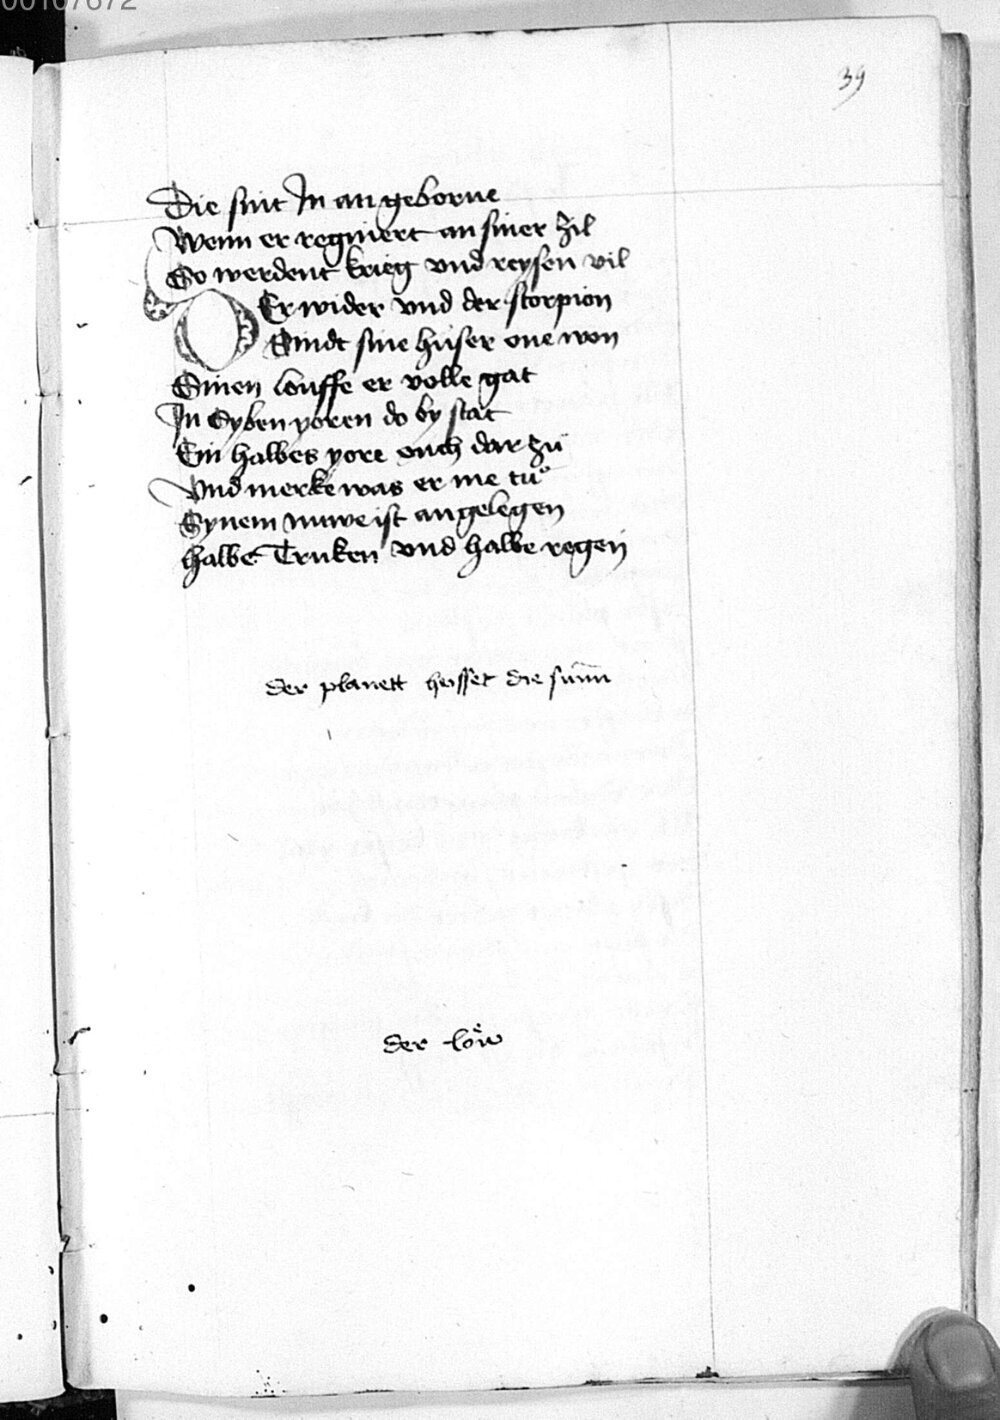 00107672
39
Die sint In an geborne
Wenn er regniert an siner zil
So werdent krieg vnd reysen vil
DEr wider vnd der scorpion
Sindt sine hüser one won
Sinen louffe er volle gat
In Syben yoren do by stat
Ein halbes yore ouch dar zü
Vnd merke was er me tuͦ
Synem nuwe ist angelegen
halbe Truken vnd halbe regen
der planett heisset die sunn
der loͤw